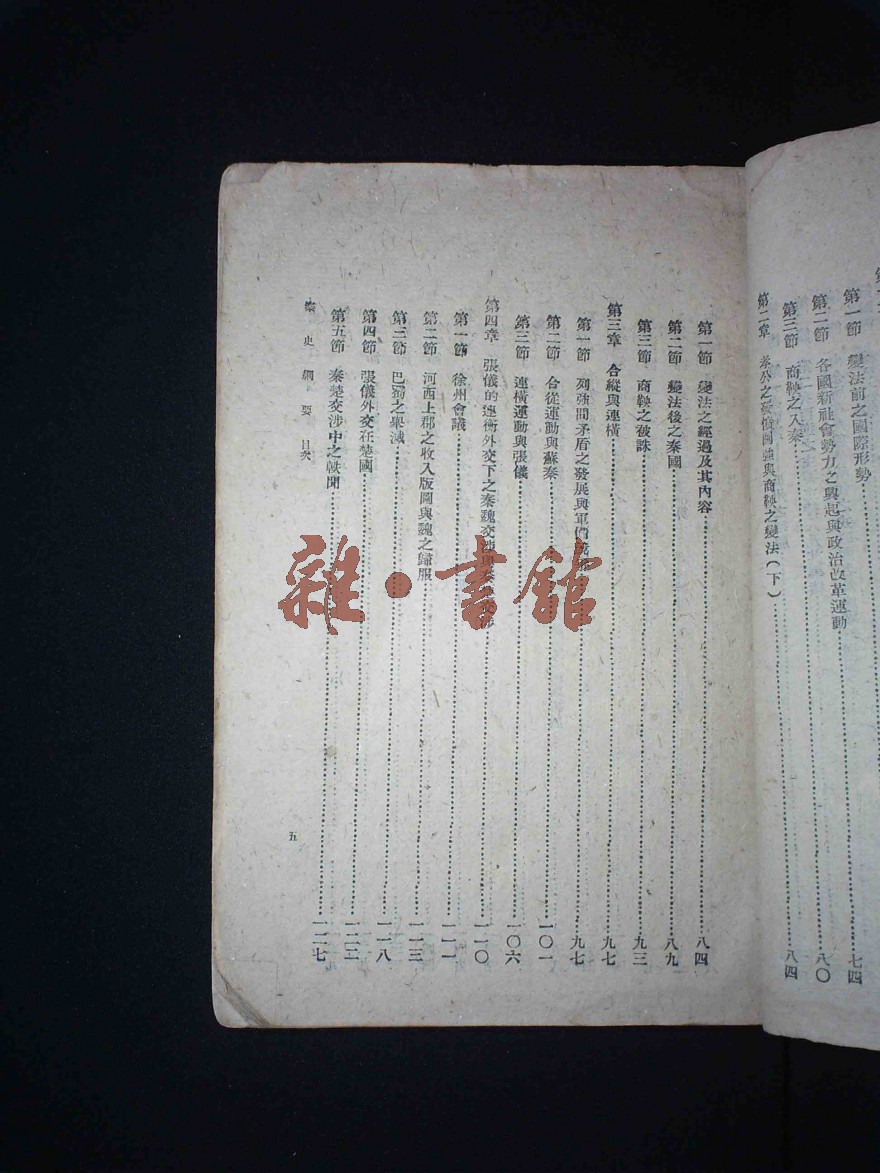 第一節 變法前之國際形勢 七四
第二節 各國新社會勢力之興起與政治改革運動 八〇
第三節 商鞅之入秦
第二章 孝公之發憤圖強與商鞅之變法(下) 八四
第一節 變法之經過及其內容 八四
第二節 變法後之秦國 八九
第三節 商鞅之被誅 九三
第三章 合縱與連橫 九七
第一節 列強間矛盾之發展與 九七
第二節 合從運動與蘇秦 一〇一
第三節 連橫運動與張儀 一〇六
第四章 張儀的連衡外交下之秦魏交涉與 一一〇
第一節 徐州會議 一一一
第二節 河西上郡之收入版圖與魏之歸服 一一三
第三節 巴蜀之舉滅 一一八
第四節 張儀外交在楚國 一二二
第五節 秦楚交涉中之軼聞 一二七
秦史綱要 目次
五
雜·書館